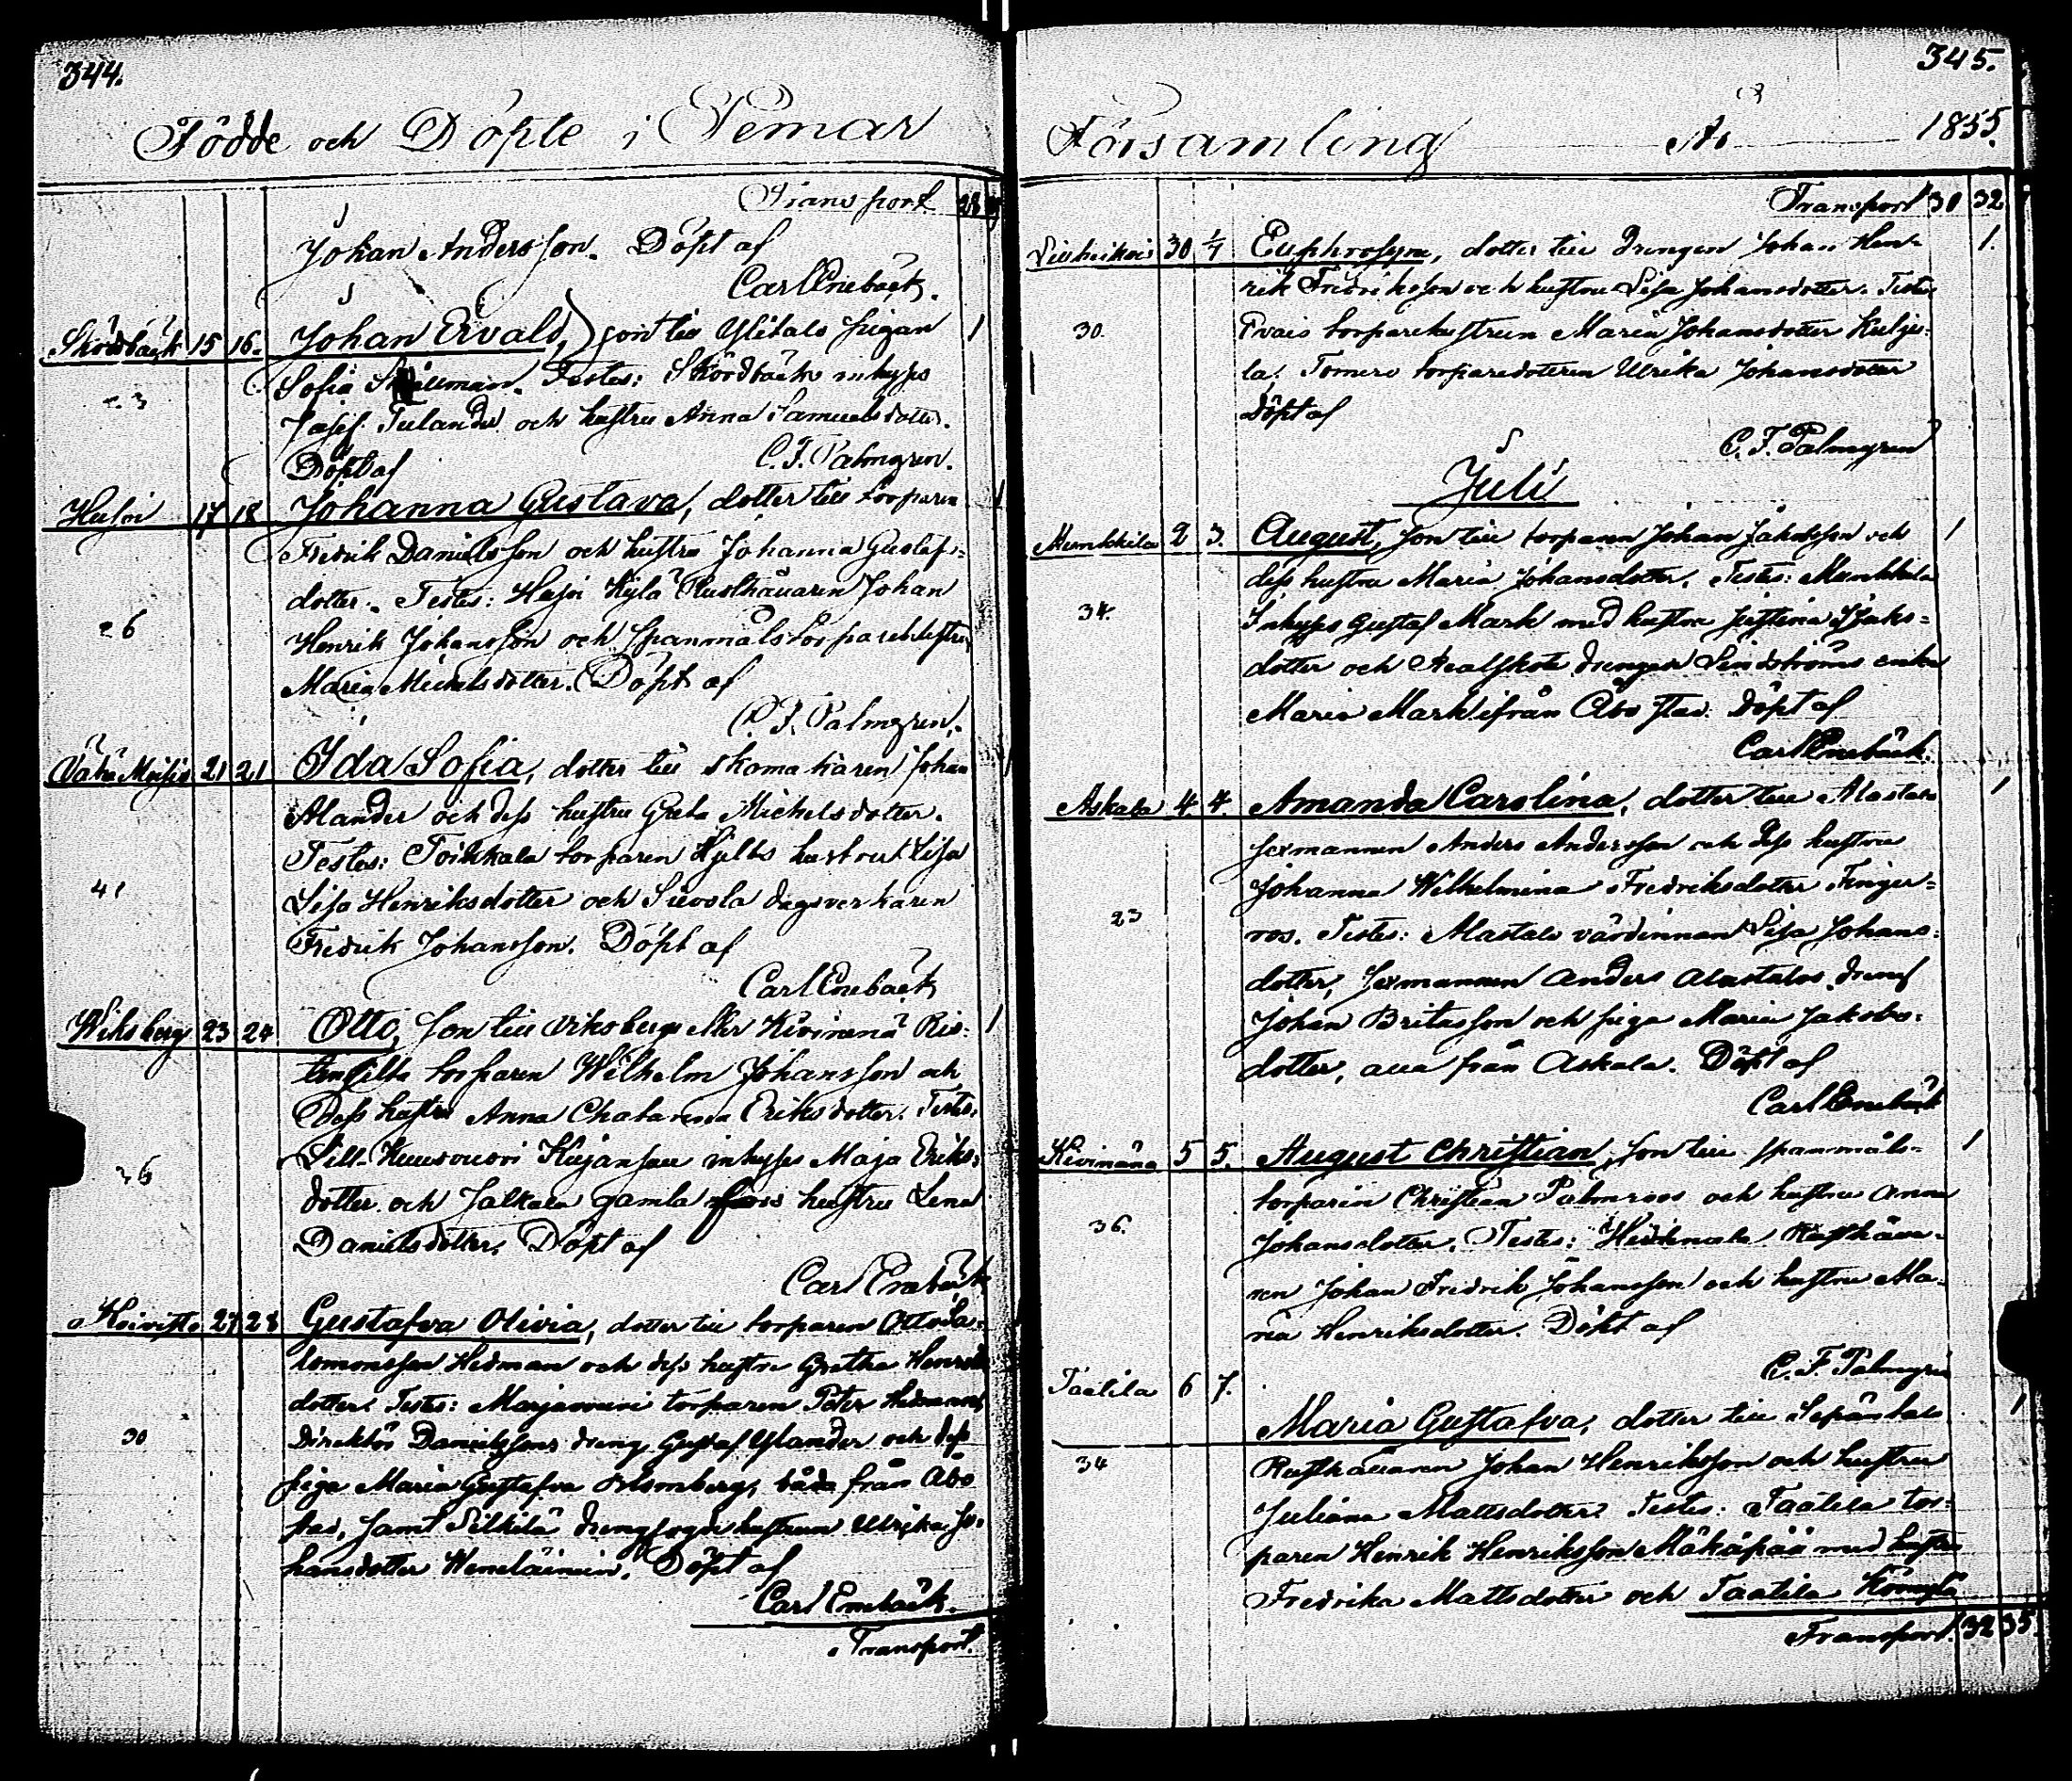 344.
Födde och Döpte i Pemar
Transport 28
Johan Andersson. Döpt af
Carl Enebäck.
Skördbäck 15 16. Johan Ervald, son till Ylitalo pigan 1
Sofia Testes: Skördbäck inhyses
23
Josef Tulander och hustru Anna Samuelsdotter.
Döpt af C. F. Palmgren.
Huhsi 17 18 Johanna Gustava, dotter till torparen 1
Fredrik Danielsson och hustru Johanna Gustafs-
dotter. Testes: Kylä Rusthållaren Johan
26
Henrik Johansson och spanmålstorparehustrun
Maria Michelsdotter. Döpt af
C. F. Palmgren.
Vähä 21 21 Ida Sofia, dotter till skomakaren Johan 1
Alander och dess hustru Greta Michelsdotter.
Testes: Toikkala torparen Hjelts hustru Lisa
41
Lisa Henriksdotter och dagsverkaren
Fredrik Johansson. Döpt af
Carl Enebäck
Wiksberg 23 24 Otto, son till Viksbergs eller Kivinenä Ris-
1
torparen Wilhelm Johansson och
Dess hustru Anna Chatarina Eriksdotter. Testes:
Lill- inhyses Maja Eriks-
26
dotter och Jalkala gamla hustru Lena
Danielsdotter. Döpt af
Carl Enebäck
Koivisto 27 28 Gustafva Olivia, dotter till torparen Otto Sa-
lomonsson Hedman och dess hustru Gretha Henriks
dotter. Testes: torparen Peter Hedman,
30
Direktör Danielssons dreng Gustaf Ylander och dess
piga Maria Gustafva Blomberg, båda från Åbo
stad, samt drengfogdehustrun Ulrika Jo-
hansdotter Weneläinen. Döpt af
Carl Enebäck.
Transport.
345.
Församling År 1855.
Transport 30 32
30 1/7 Euphrosyne, dotter till Drengen Johan Hen- 1.
rik Fredriksson och hustru Lisa Johansdotter. Testes
30.
torparehustrun Maria Johansdotter Kulju-
la, torparedotteren Ulrika Johansdotter
Döpt af
C. F. Palmgren
Juli
Munkkila 2 3. August, son till torparen Johan Jakobsson och 1
dess hustru Maria Johansdotter. Testes: Munkkila
34.
Inhyses Gustaf Mark med hustru Justina Isaks-
dotter och drengen Lindströms enka
Maria Mark ifrån Åbo stad. Döpt af
Carl Enebäck.
Askala 4. 4. Amanda Carolina, dotter till Alastalo 1
sexmannen Anders Andersson och dess hustru
Johanna Wilhelmina Fredriksdotter Finger-
23
ros. Testes: Alastalo värdinnan Lisa Johans-
dotter, sexmannen Anders Alastalos dreng
Johan Britasson och piga Maria Jakobs-
dotter, alla från Askala. Döpt af
Carl Enebäck
Kivinänä 5 5. August Christian, son till spannmåls- 1
torparen Christian Palmroos och hustru Anna
36.
Johansdotter. Testes: Rusthålla-
ren Johan Fredrik Johansson och hustru Ma-
ria Henriksdotter. Döpt af
C. F. Palmgren
Taatila 6 7.
Maria Gustafva, dotter till Sepäntalo 1
34
Rusthållaren Johan Henriksson och hustru
Juliana Mattsdotter. Testes: Taatila tor-
paren Henrik Henriksson Mäkäpää med hustru
Fredrika Mattsdotter och Taatila
Transport. 32 35.